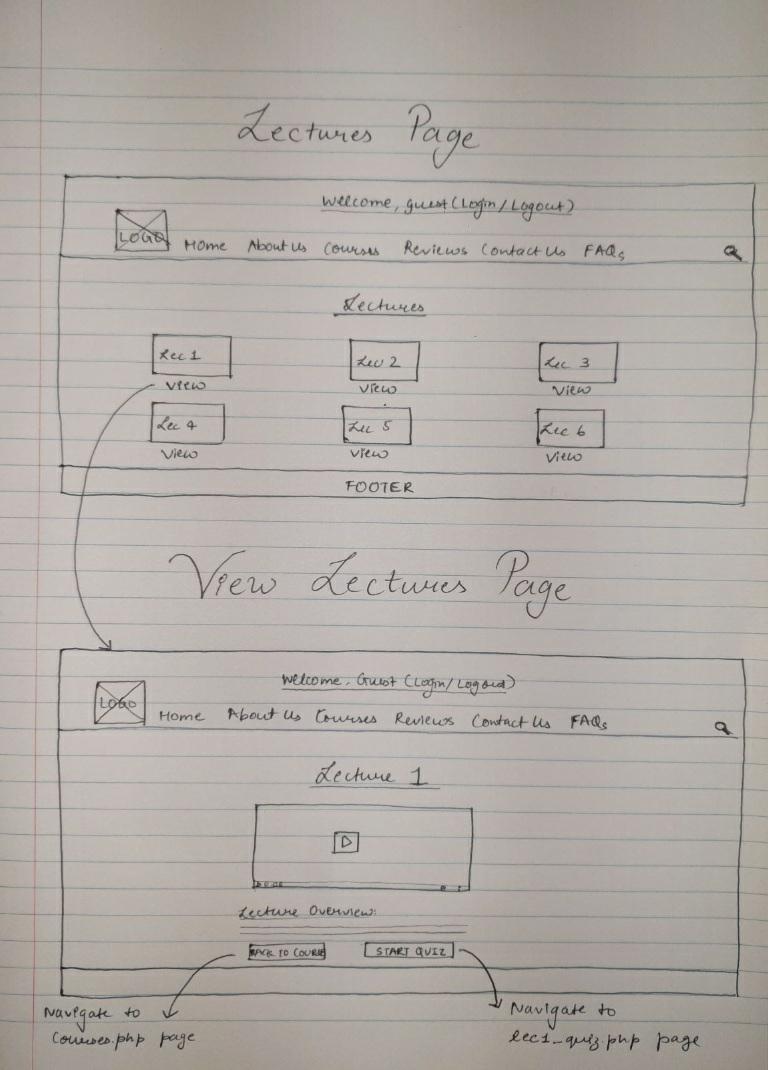 Lectures Page
Welcome, guest (Login/Logout)
LOGO Home About Us Courses Reviews Contact Us FAQs
Lectures
Lec 1 Lec 2 Lec 3
View View View
Lec 4 Lec 5 Lec 6
View View View
FOOTER
View Lectures Page
Welcome, Guest (Login/Logout)
LOGO Home About Us Courses Reviews Contact Us FAQs
Lecture 1
Lecture Overview:
BACK TO COURSE START QUIZ
Navigate to Navigate to
Courses.php page lec1_quiz.php page